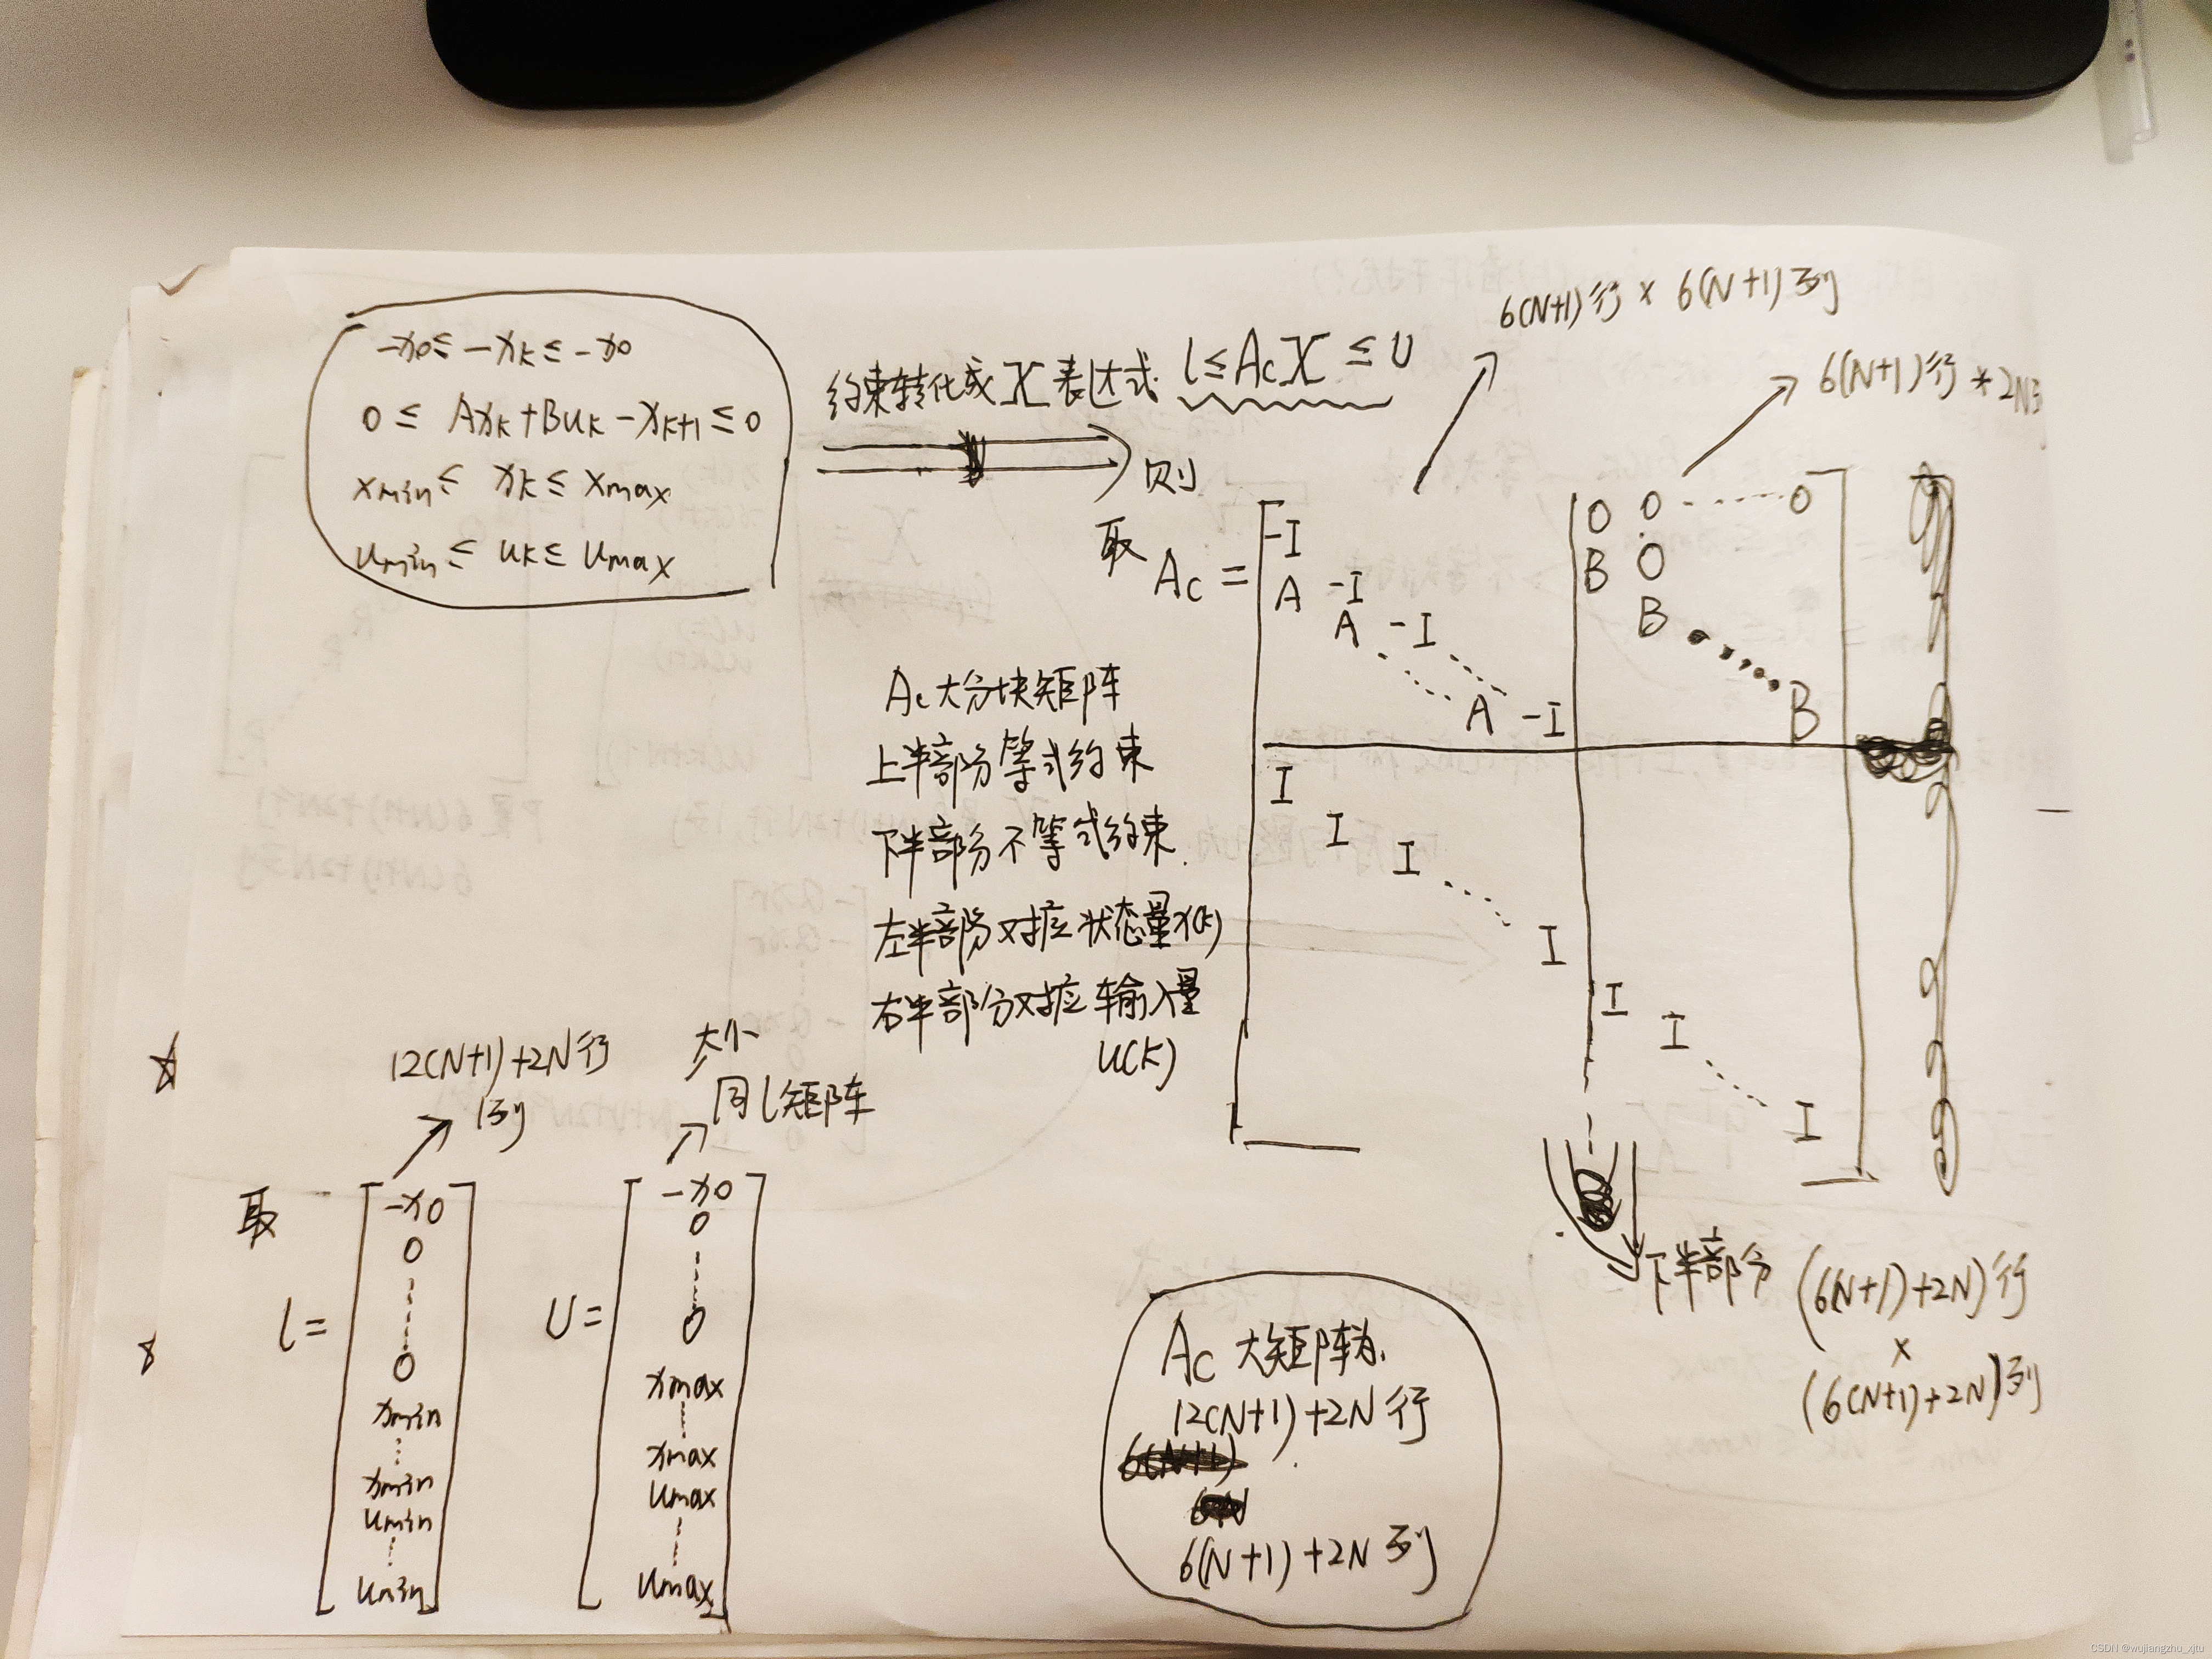 -x0 ≤ -xk ≤ -x0
0 ≤ Axk+Buk-xk+1 ≤ 0
xmin ≤ xk ≤ xmax
umin ≤ uk ≤ umax
约束转化成X表达式 l≤AcX≤U
6(N+1)行 × 6(N+1)列
6(N+1)行 * 2N列
则
取
Ac =
-I 0 0 ----- 0
A -I B 0
A -I B
A -I B
I
I
I
I
I
I
I
Ac大分块矩阵
上半部分等式约束
下半部分不等式约束.
左半部分对应状态量x(k)
右半部分对应输入量
u(k)
下半部分 (6(N+1)+2N)行
×
(6(N+1)+2N)列
12(N+1)+2N行
1列
大小
同l矩阵
取
l=
-x0
0
0
xmin
xmin
umin
umin
U=
-x0
0
0
xmax
xmax
umax
umax
Ac 大矩阵为.
12(N+1)+2N行
6(N+1)+2N列
CSDN @wujiangzhu_xjtu